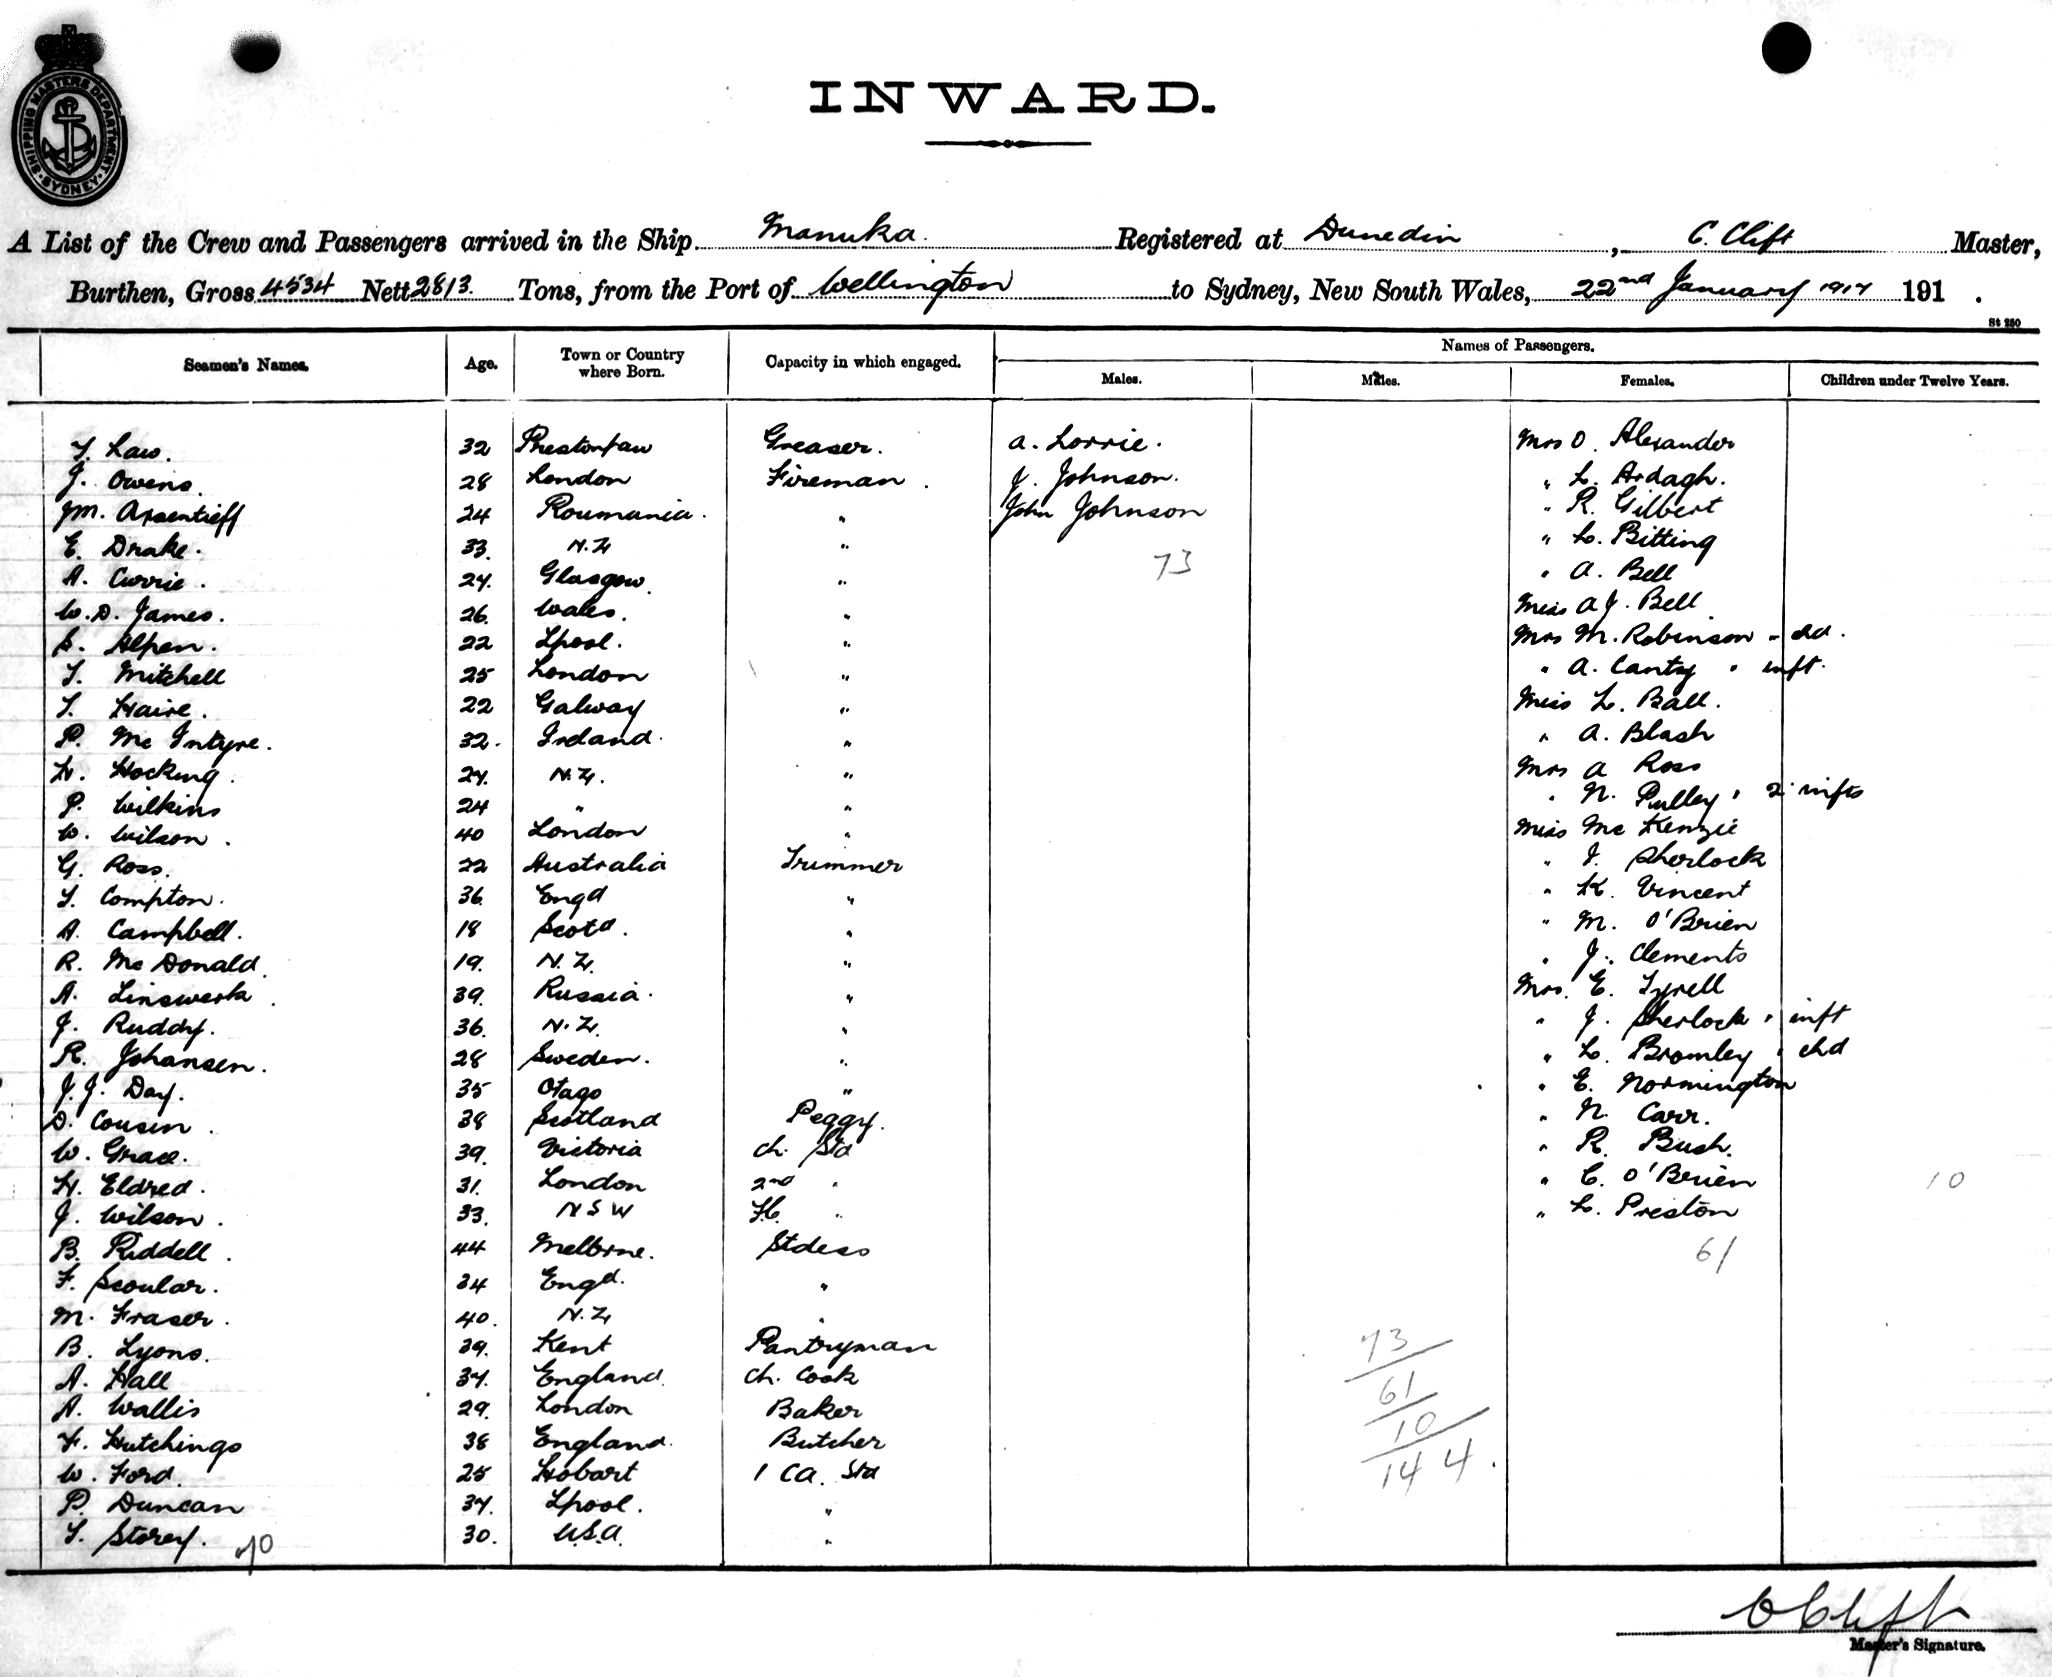 SHIPPING MASTERS DEPARTMENT
SYDNEY
INWARD.
A List of the Crew and Passengers arrived in the Ship Manuka. Registered at Dunedin, C. Clift Master,
Burthen, Gross 4534 Nett 2813 Tons, from the Port of Wellington to Sydney, New South Wales, 22nd January 1917 191 .
St 250
Seamen's Names. Age. Town or Country where Born. Capacity in which engaged. Names of Passengers.
Males. Males. Females. Children under Twelve Years.
T. Law. 32 Greaser. A. Lorrie. Mrs O. Alexander
J. Owens. 28 London Fireman. J. Johnson. " L. Ardagh.
M. Arsentieff 24 Roumania. " John Johnson " R. Gilbert
E. Drake. 33. N.Z " " L. Bitting
73
A. Currie. 27. Glasgow. " " A. Bell
W. D. James. 26. Wales. " Miss A J. Bell
S. Alpen. 22 Lpool. " Mrs M. Robinson " chd.
T. Mitchell 25 London " " A. Canty " inft.
T. Haire. 22 Galway " Miss L. Ball.
P. Mc Intyre. 32. Ireland. " " A. Blash
H. Hocking. 27. N.Z. " Mrs A Ross
P. Wilkins 24 " " " N. Pulley " 2 infts
W. Wilson. 40 London " Miss Mc Kenzie
G. Ross. 22 Australia Trimmer " J. Sherlock
T. Compton. 36. Engd " " K. Vincent
A. Campbell. 18 Scotd. " " M. O'Brien
R. Mc Donald. 19. N.Z. " " J. Clements
A. Linswerk. 39. Russia. " Mrs. E. Tyrell
J. Ruddy. 36. N.Z. " " J. Sherlock " inft
R. Johansen. 28 Sweden. " " L. Bromley " chd
J. J. Day. 35 Otago " " E. Normington
D. Cousin. 38 Scotland Peggy. " N. Carr.
W. Grace. 39. Victoria Ch. Std " R. Bush.
H. Eldred. 31. London 2nd " " C. O'Brien 10
J. Wilson. 33. N S W " " L. Preston
B. Riddell. 44 Melbrne. Stdess 61
F. Scoular. 34 Engd. "
M. Fraser. 40. N.Z "
B. Lyons. 39. Kent Pantryman 73
A. Hall 37. England. Ch. Cook 61
A. Wallis 29. London Baker 10
F. Hutchings 38 England. Butcher
W. Ford. 25 Hobart 1 Ca. Std 144.
P. Duncan 37. Lpool. "
T. Storey. 30. U.S.A. "
70
C Clift
Master's Signature.